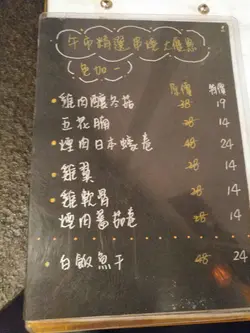 午市精選串燒大優惠
色加一
原價 特價
雞肉釀冬菇 38 19
五花腩 28 14
煙肉日本蠔卷 48 24
雞翼 28 14
雞軟骨 28 14
煙肉蕃茄卷 28 14
白飯魚干 48 24